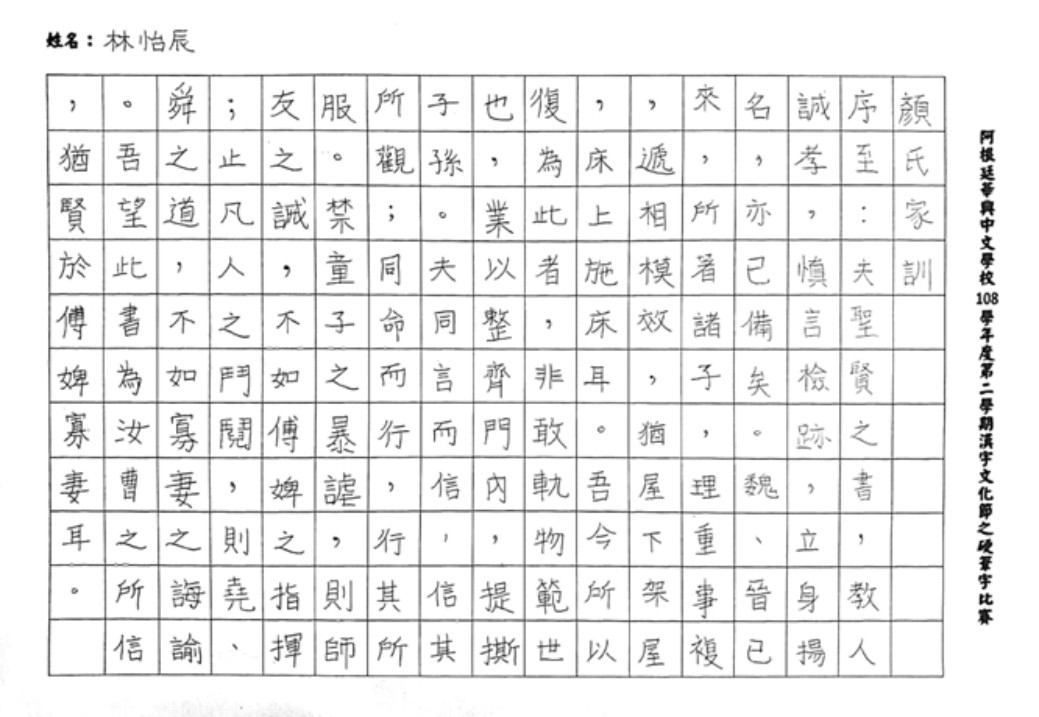 姓名：林怡辰
阿根廷華興中文學校108學年度第二學期漢字文化節之硬筆字比賽
顏氏家訓
序至：夫聖賢之書，教人
誠孝，慎言檢跡，立身揚
名，亦已備矣。魏、晉已
來，所著諸子，理重事複
，遞相模效，猶屋下架屋
，床上施床耳。吾今所以
復為此者，非敢軌物範世
也，業以整齊門內，提撕
子孫。夫同言而信，信其
所觀；同命而行，行其所
服。禁童子之暴謔，則師
友之誡，不如傅婢之指揮
；止凡人之鬥鬩，則堯、
舜之道，不如寡妻之誨諭
。吾望此書為汝曹之所信
，猶賢於傅婢寡妻耳。